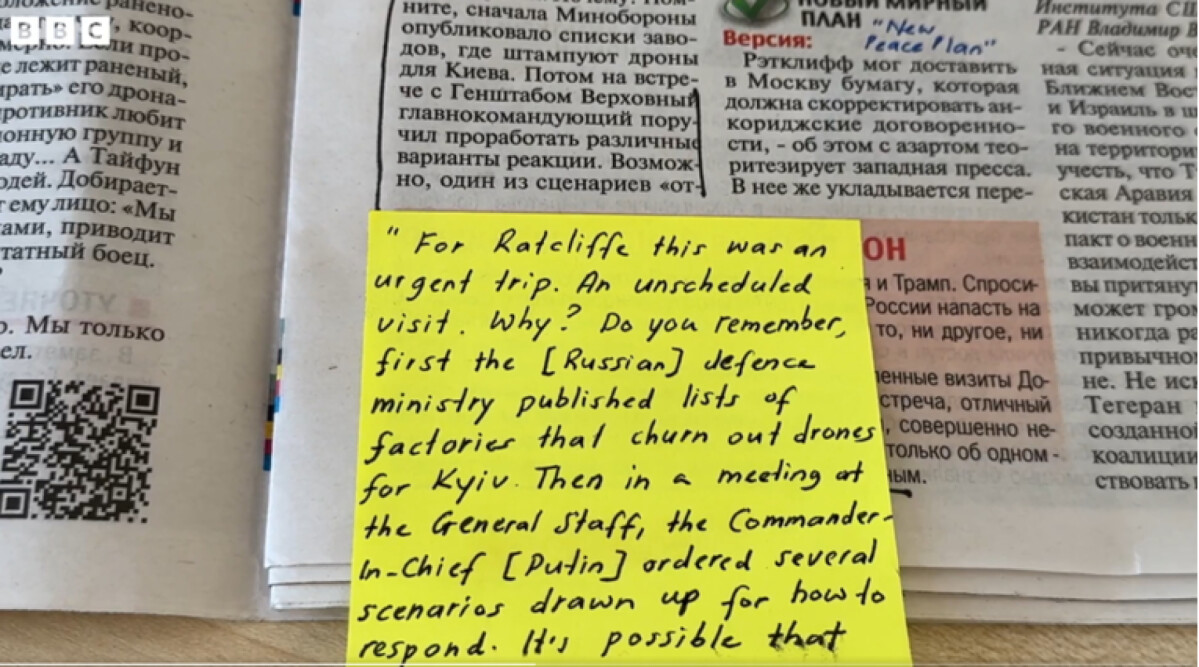 BBC
ранено-
, коор-
ли про-
е лежит раненый,
ирать» его дрона-
ротивник любит
ионную группу и
аду... А Тайфун
одей. Добирает-
т ему лицо: «Мы
ами, приводит
татный боец.
о. Мы только
ел.
ните, сначала Минобороны
опубликовало списки заво-
дов, где штампуют дроны
для Киева. Потом на встре-
че с Генштабом Верховный
главнокомандующий пору-
чил проработать различные
варианты реакции. Возмож-
но, один из сценариев «от-
НОВЫЙ МИРНЫЙ
ПЛАН
"New
Peace Plan"
Версия:
Рэтклифф мог доставить
в Москву бумагу, которая
должна скорректировать ан-
кориджские договоренно-
сти, - об этом с азартом тео-
ретизирует западная пресса.
В нее же укладывается пере-
ОН
и Трамп. Спроси-
России напасть на
то, ни другое, ни
енные визиты До-
стреча, отличный
, совершенно не-
только об одном -
ным.
Института США
РАН Владимир В
- Сейчас оче
ная ситуация
Ближнем Вост
и Израиль в ш
го военного
на территори
учесть, что Т
ская Аравия
кистан тольк
пакт о военн
взаимодейст
вы притяну
может гром
никогда ра
привычном
не. Не иск
Тегеран
созданной
коалиции
ствовать
" For Ratcliffe this was an
urgent trip. An unscheduled
visit. Why? Do you remember,
first the [Russian] defence
ministry published lists of
factories that churn out drones
for Kyiv. Then in a meeting at
the General Staff, the Commander-
In-Chief [Putin] ordered several
scenarios drawn up for how to
respond. It's possible that